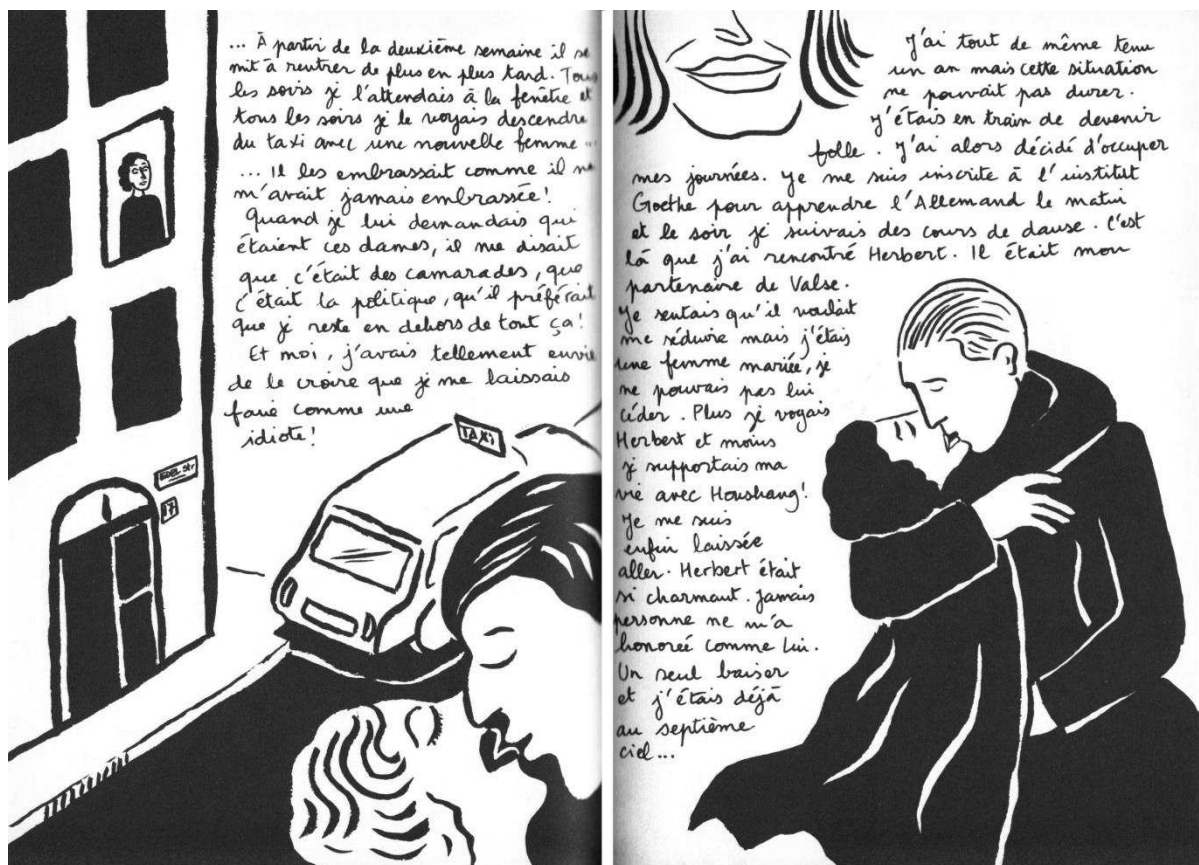 ... À partir de la deuxième semaine il se
mit à rentrer de plus en plus tard. Tous
les soirs je l'attendais à la fenêtre et
tous les soirs je le voyais descendre
du taxi avec une nouvelle femme...
... Il les embrassait comme il ne
m'avait jamais embrassée!
Quand je lui demandais qui
étaient ces dames, il me disait
que c'était des camarades, que
c'était la politique, qu'il préférait
que je reste en dehors de tout ça!
Et moi, j'avais tellement envie
de le croire que je me laissais
faire comme une
idiote!
TAXI
EDEL Str
17
J'ai tout de même tenu
un an mais cette situation
ne pouvait pas durer.
J'étais en train de devenir
folle. J'ai alors décidé d'occuper
mes journées. Je me suis inscrite à l'institut
Goethe pour apprendre l'Allemand le matin
et le soir je suivais des cours de danse. C'est
là que j'ai rencontré Herbert. Il était mon
partenaire de Valse.
Je sentais qu'il voulait
me séduire mais j'étais
une femme mariée, je
ne pouvais pas lui
céder. Plus je voyais
Herbert et moins
je supportais ma
vie avec Houshang!
Je me suis
enfin laissée
aller. Herbert était
si charmant. Jamais
personne ne m'a
honorée comme lui.
Un seul baiser
et j'étais déjà
au septième
ciel...